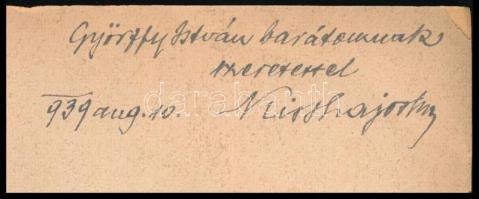 Györffy István barátomnak
szeretettel
939 aug. 10. Kiss Lajos